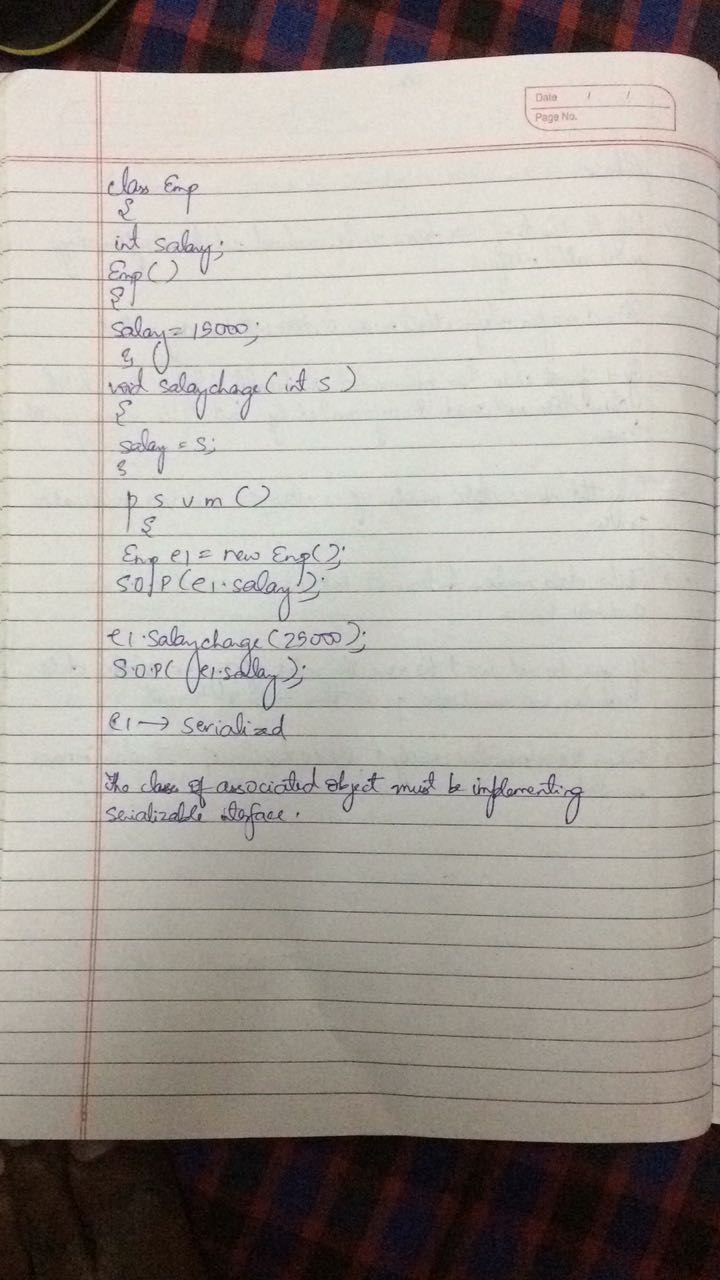 Date / /
Page No.
class Emp
{
int salary;
Emp()
{
salay = 15000;
}
void salaychange(int s)
{
salay = s;
}
p s v m ()
{
Emp e1 = new Emp();
S.O.P(e1.salary);
e1.Salaychange(25000);
S.O.P( e1.sallay);
e1 → serialized
The class of associated object must be implementing
serializable iterface.